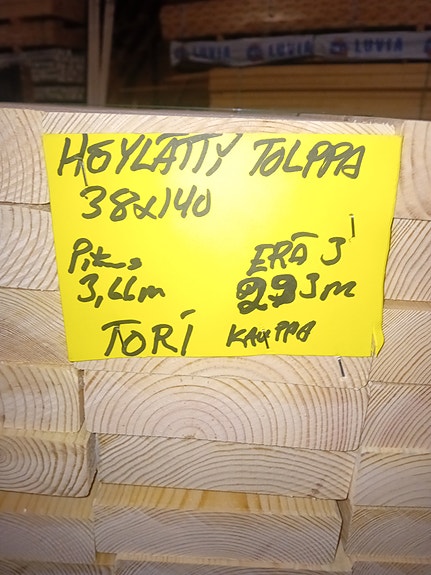 LUVIA LUVIA LUVIA
HÖYLÄTTY TOLPPA
38x140
Pituus
3,66m
ERÄ 3
293m
TORI KAUPPA